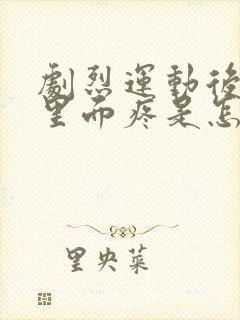 劇烈運動後
里面疼是怎
里央菜